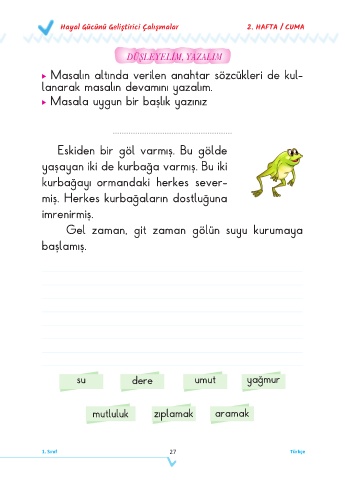 Hayal Gücünü Geliştirici Çalışmalar
2. HAFTA / CUMA
DÜŞLEYELİM, YAZALIM
Masalın altında verilen anahtar sözcükleri de kul-
lanarak masalın devamını yazalım.
Masala uygun bir başlık yazınız
Eskiden bir göl varmış. Bu gölde
yaşayan iki de kurbağa varmış. Bu iki
kurbağayı ormandaki herkes sever-
miş. Herkes kurbağaların dostluğuna
imrenirmiş.
Gel zaman, git zaman gölün suyu kurumaya
başlamış.
su
dere
umut
yağmur
mutluluk
zıplamak
aramak
27
Türkçe